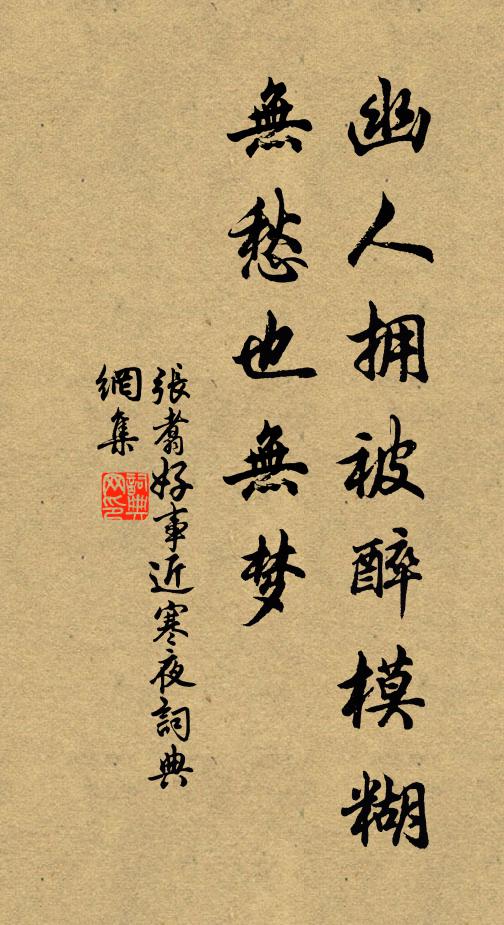 幽人拥被醉模糊
無愁也無梦
張翥好事近寒夜詞典
網集
詞典
网印